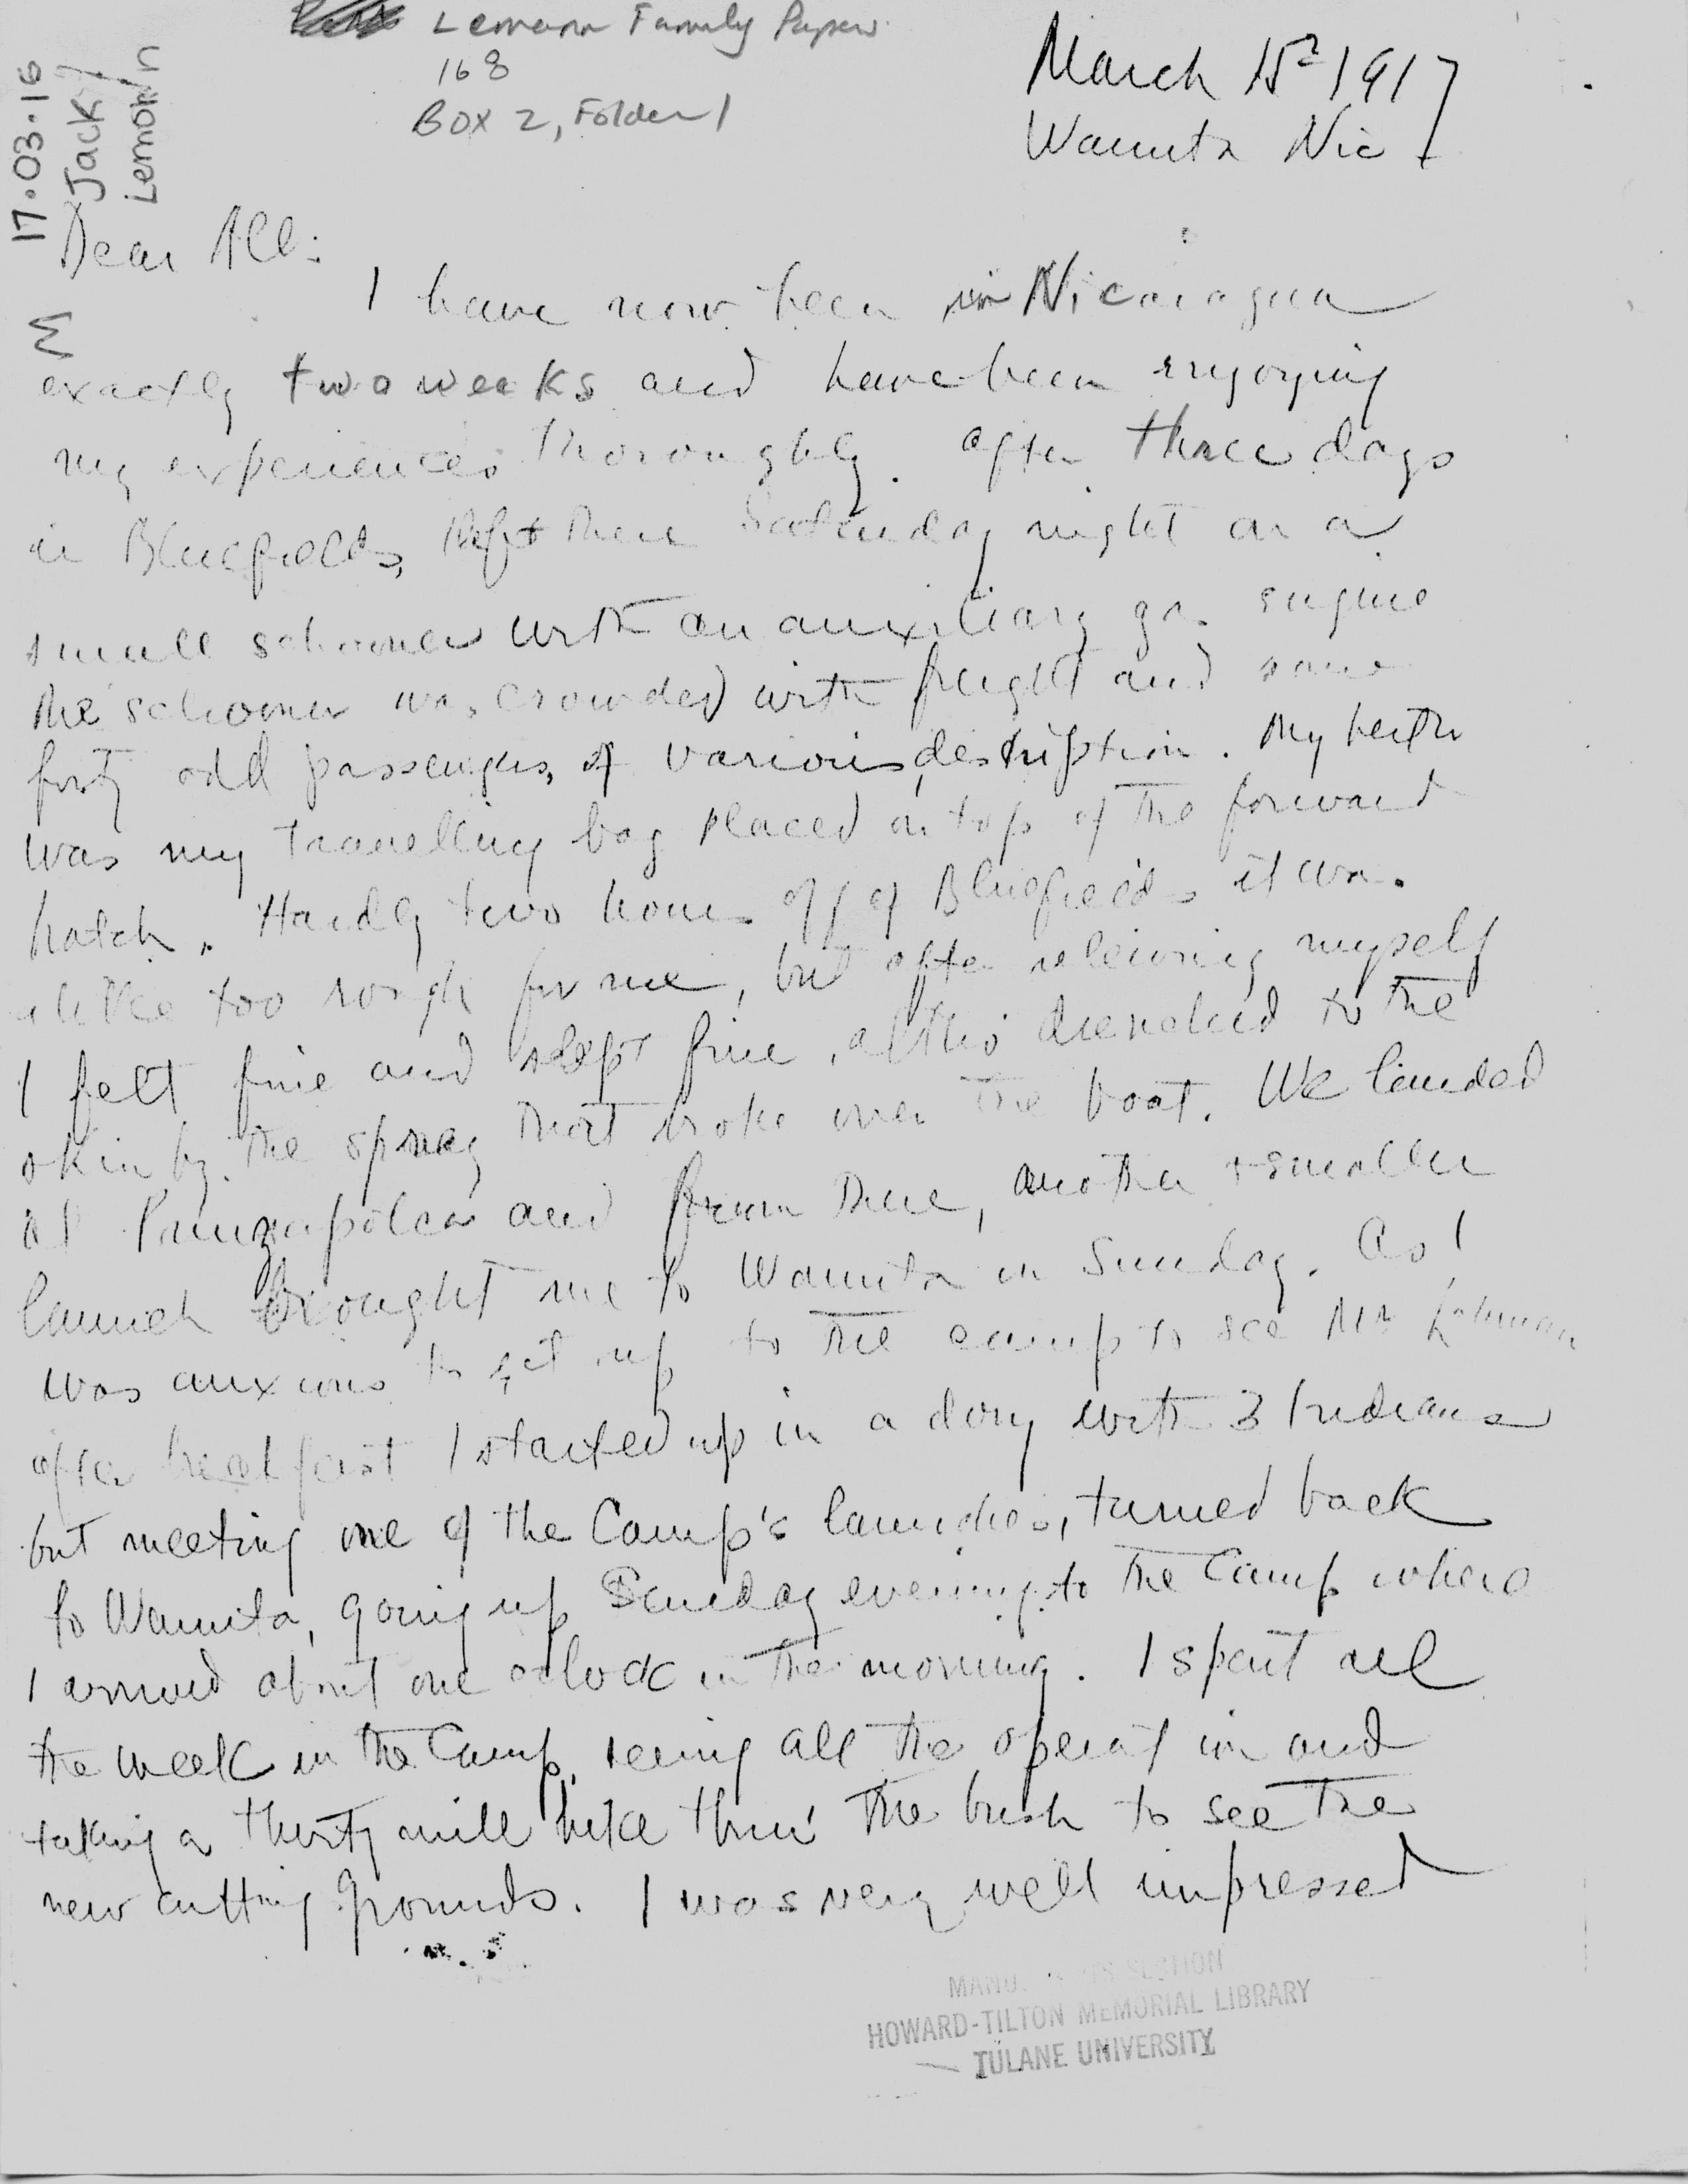 Lemann Family Papers
168
Box 2, Folder 1
17.03.16
Jack
Lemann
M
March 1917
Waunta Nic
Dear All:
I have now been in Nicaragua
exactly two weeks and have been enjoying
my experiences thoroughly. After three days
in Bluefields, I left there Saturday night on a
small schooner with an auxiliary gas engine
the schooner was crowded with freight and some
forty odd passengers of various description. My berth
was my travelling bag placed on top of the forward
hatch. Hardly two hours off of Bluefields it was
a little too rough for me, but after relieving myself
I felt fine and slept fine, altho' drenched to the
skin by the spray that broke over the boat. We landed
at Prinzapolca and from there, another & smaller
launch brought me to Waunta on Sunday. As I
was anxious to get up to the camp to see Mr
after breakfast I started up in a dory with 3 Indians
but meeting one of the Camp's launches, turned back
to Waunta, going up Sunday evening to the Camp where
I arrived about one oclock in the morning. I spent all
the week in the Camp, seeing all the operation and
taking a thirty mile hike thru' the bush to see the
new cutting grounds. I was very well impressed
SECTION
HOWARD-TILTON MEMORIAL LIBRARY
TULANE UNIVERSITY